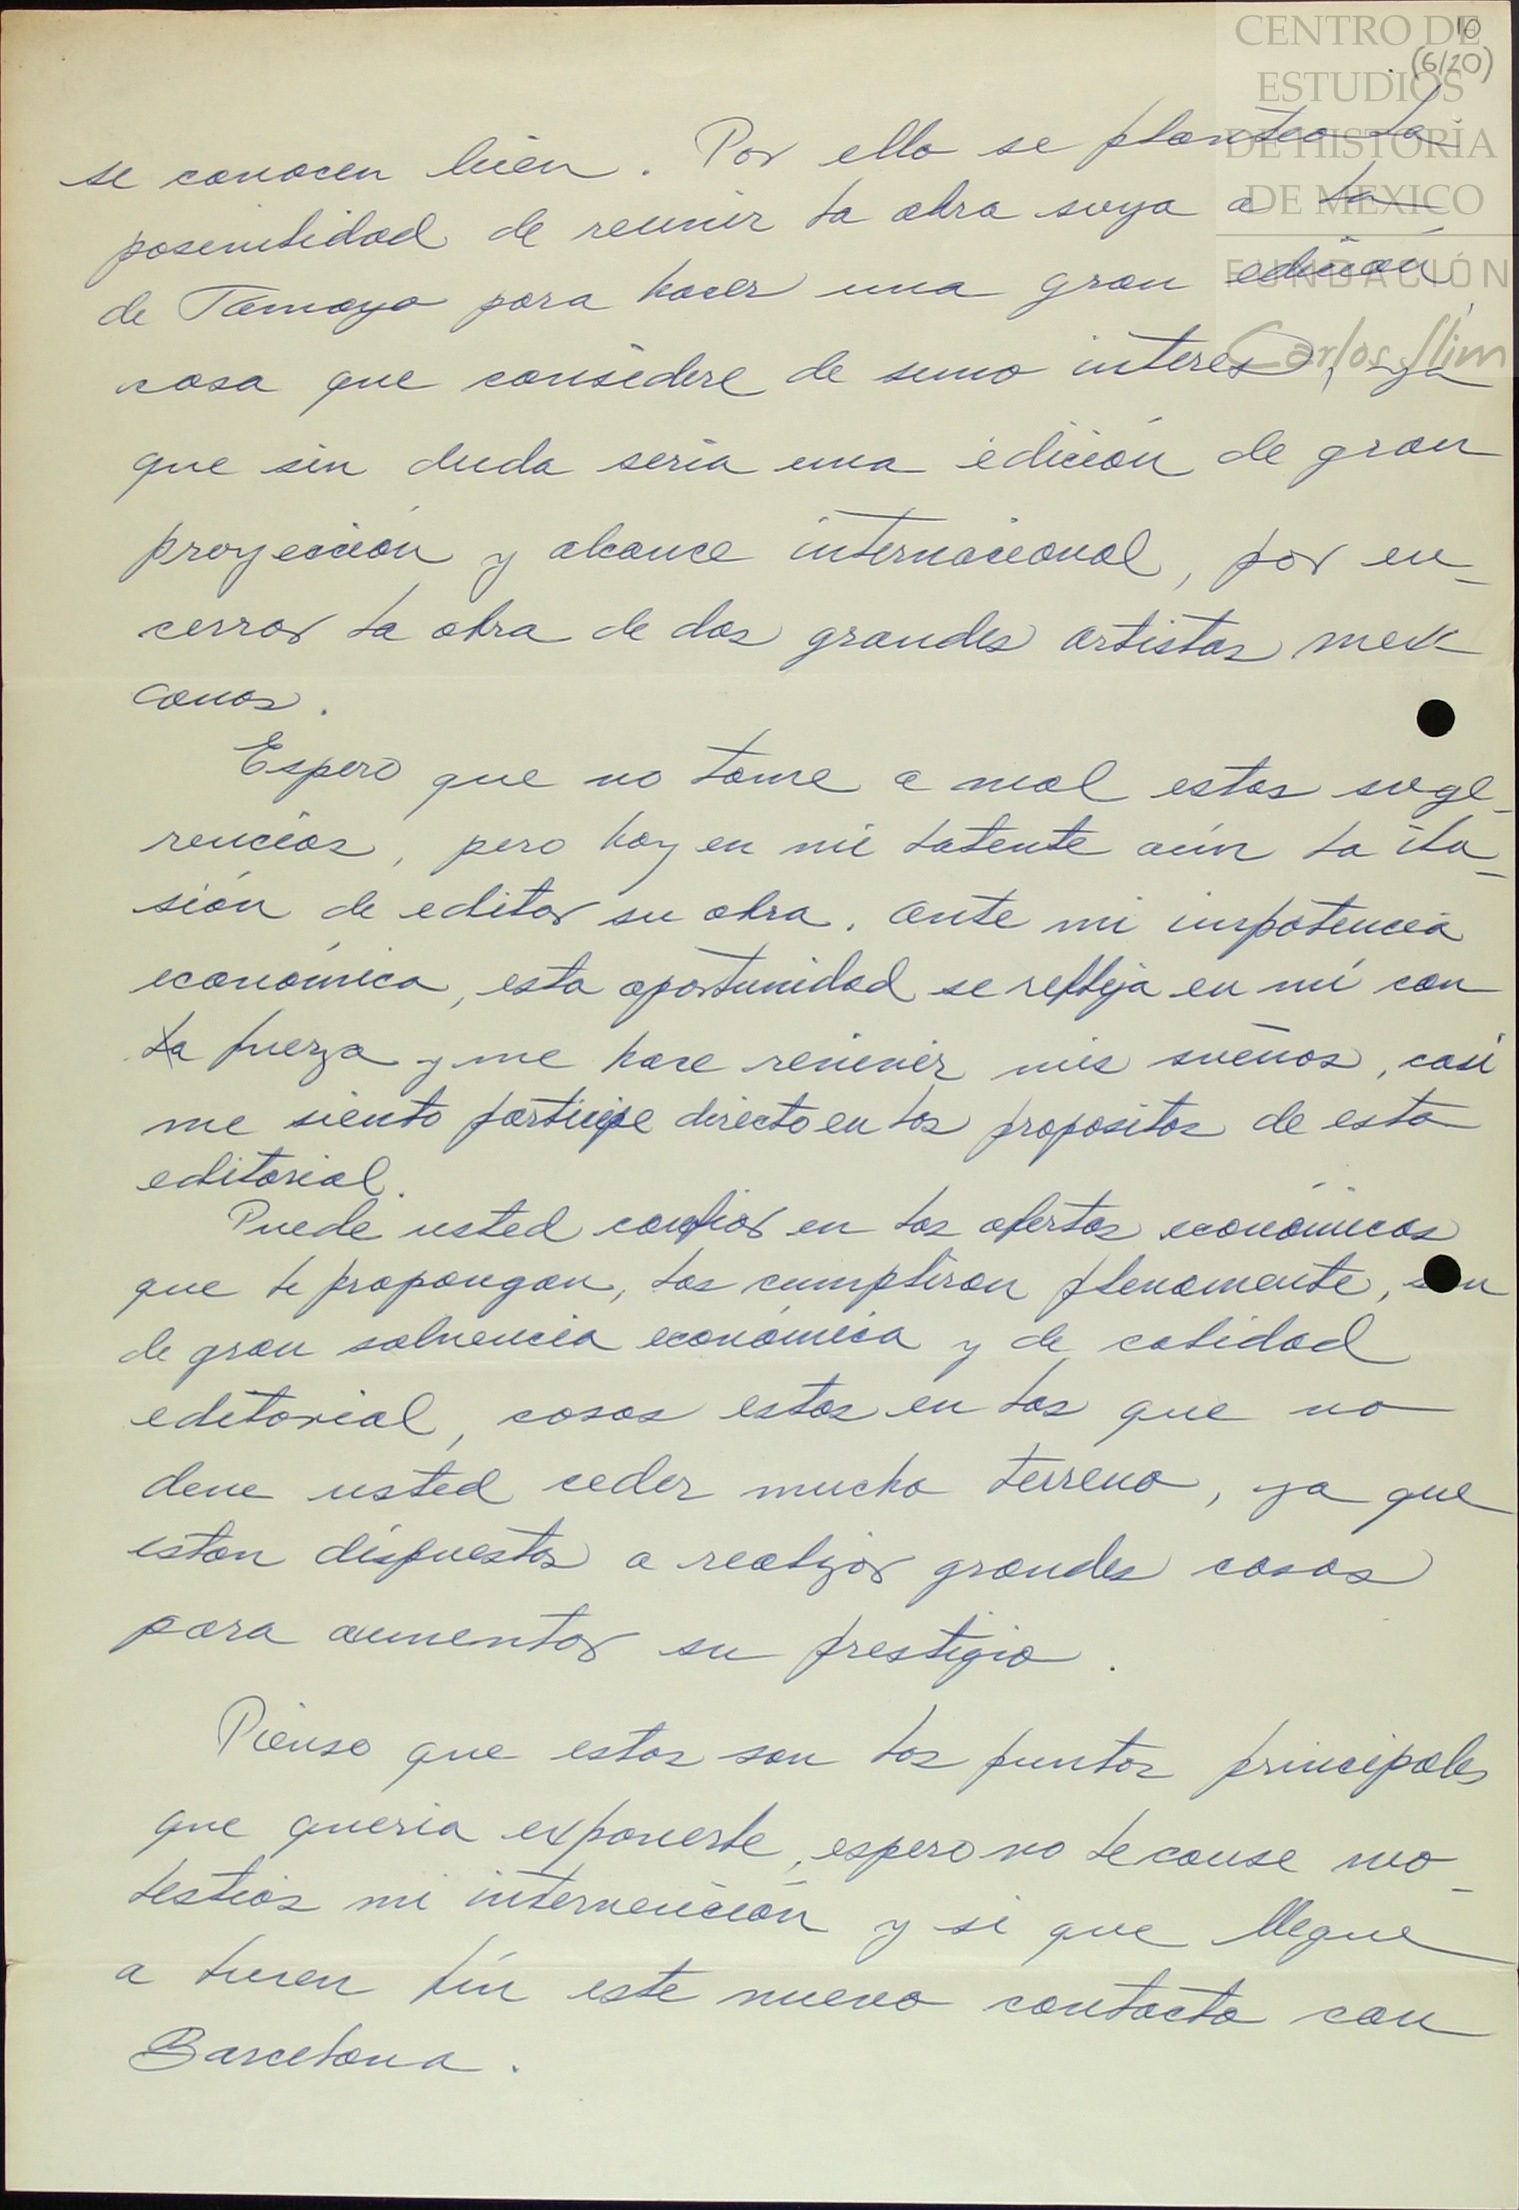 CENTRO DE
ESTUDIOS
DE HISTORIA
DE MEXICO
FUNDACIÓN
Carlos Slim
10
(6/20)
se conocen bien. Por ello se planteo la
posibilidad de reunir la obra suya a la
de Tamayo para hacer una gran edición,
cosa que considere de sumo interes, ya
que sin duda seria una edición de gran
proyección y alcance internacional, por en-
cerrar la obra de dos grandes artistas mexi-
canos.
Espero que no tome a mal estas suge-
rencias, pero hay en mi latente aún la ilu-
sión de editar su obra. Ante mi impotencia
económica, esta oportunidad se refleja en mi con
la fuerza y me hace revivir mis sueños, casi
me siento participe directo en los propositos de esta
editorial.
Puede usted confiar en las ofertas económicas
que le propongan, las cumpliran plenamente, son
de gran solvencia económica y de calidad
editorial, cosas estas en las que no
deve usted ceder mucho terreno, ya que
estan dispuestos a realizar grandes cosas
para aumentar su prestigio.
Pienso que estos son los puntos principales
que queria exponerle, espero no le cause mo-
lestias mi intervención y si que llegue
a buen fín este nuevo contacto con
Barcelona.